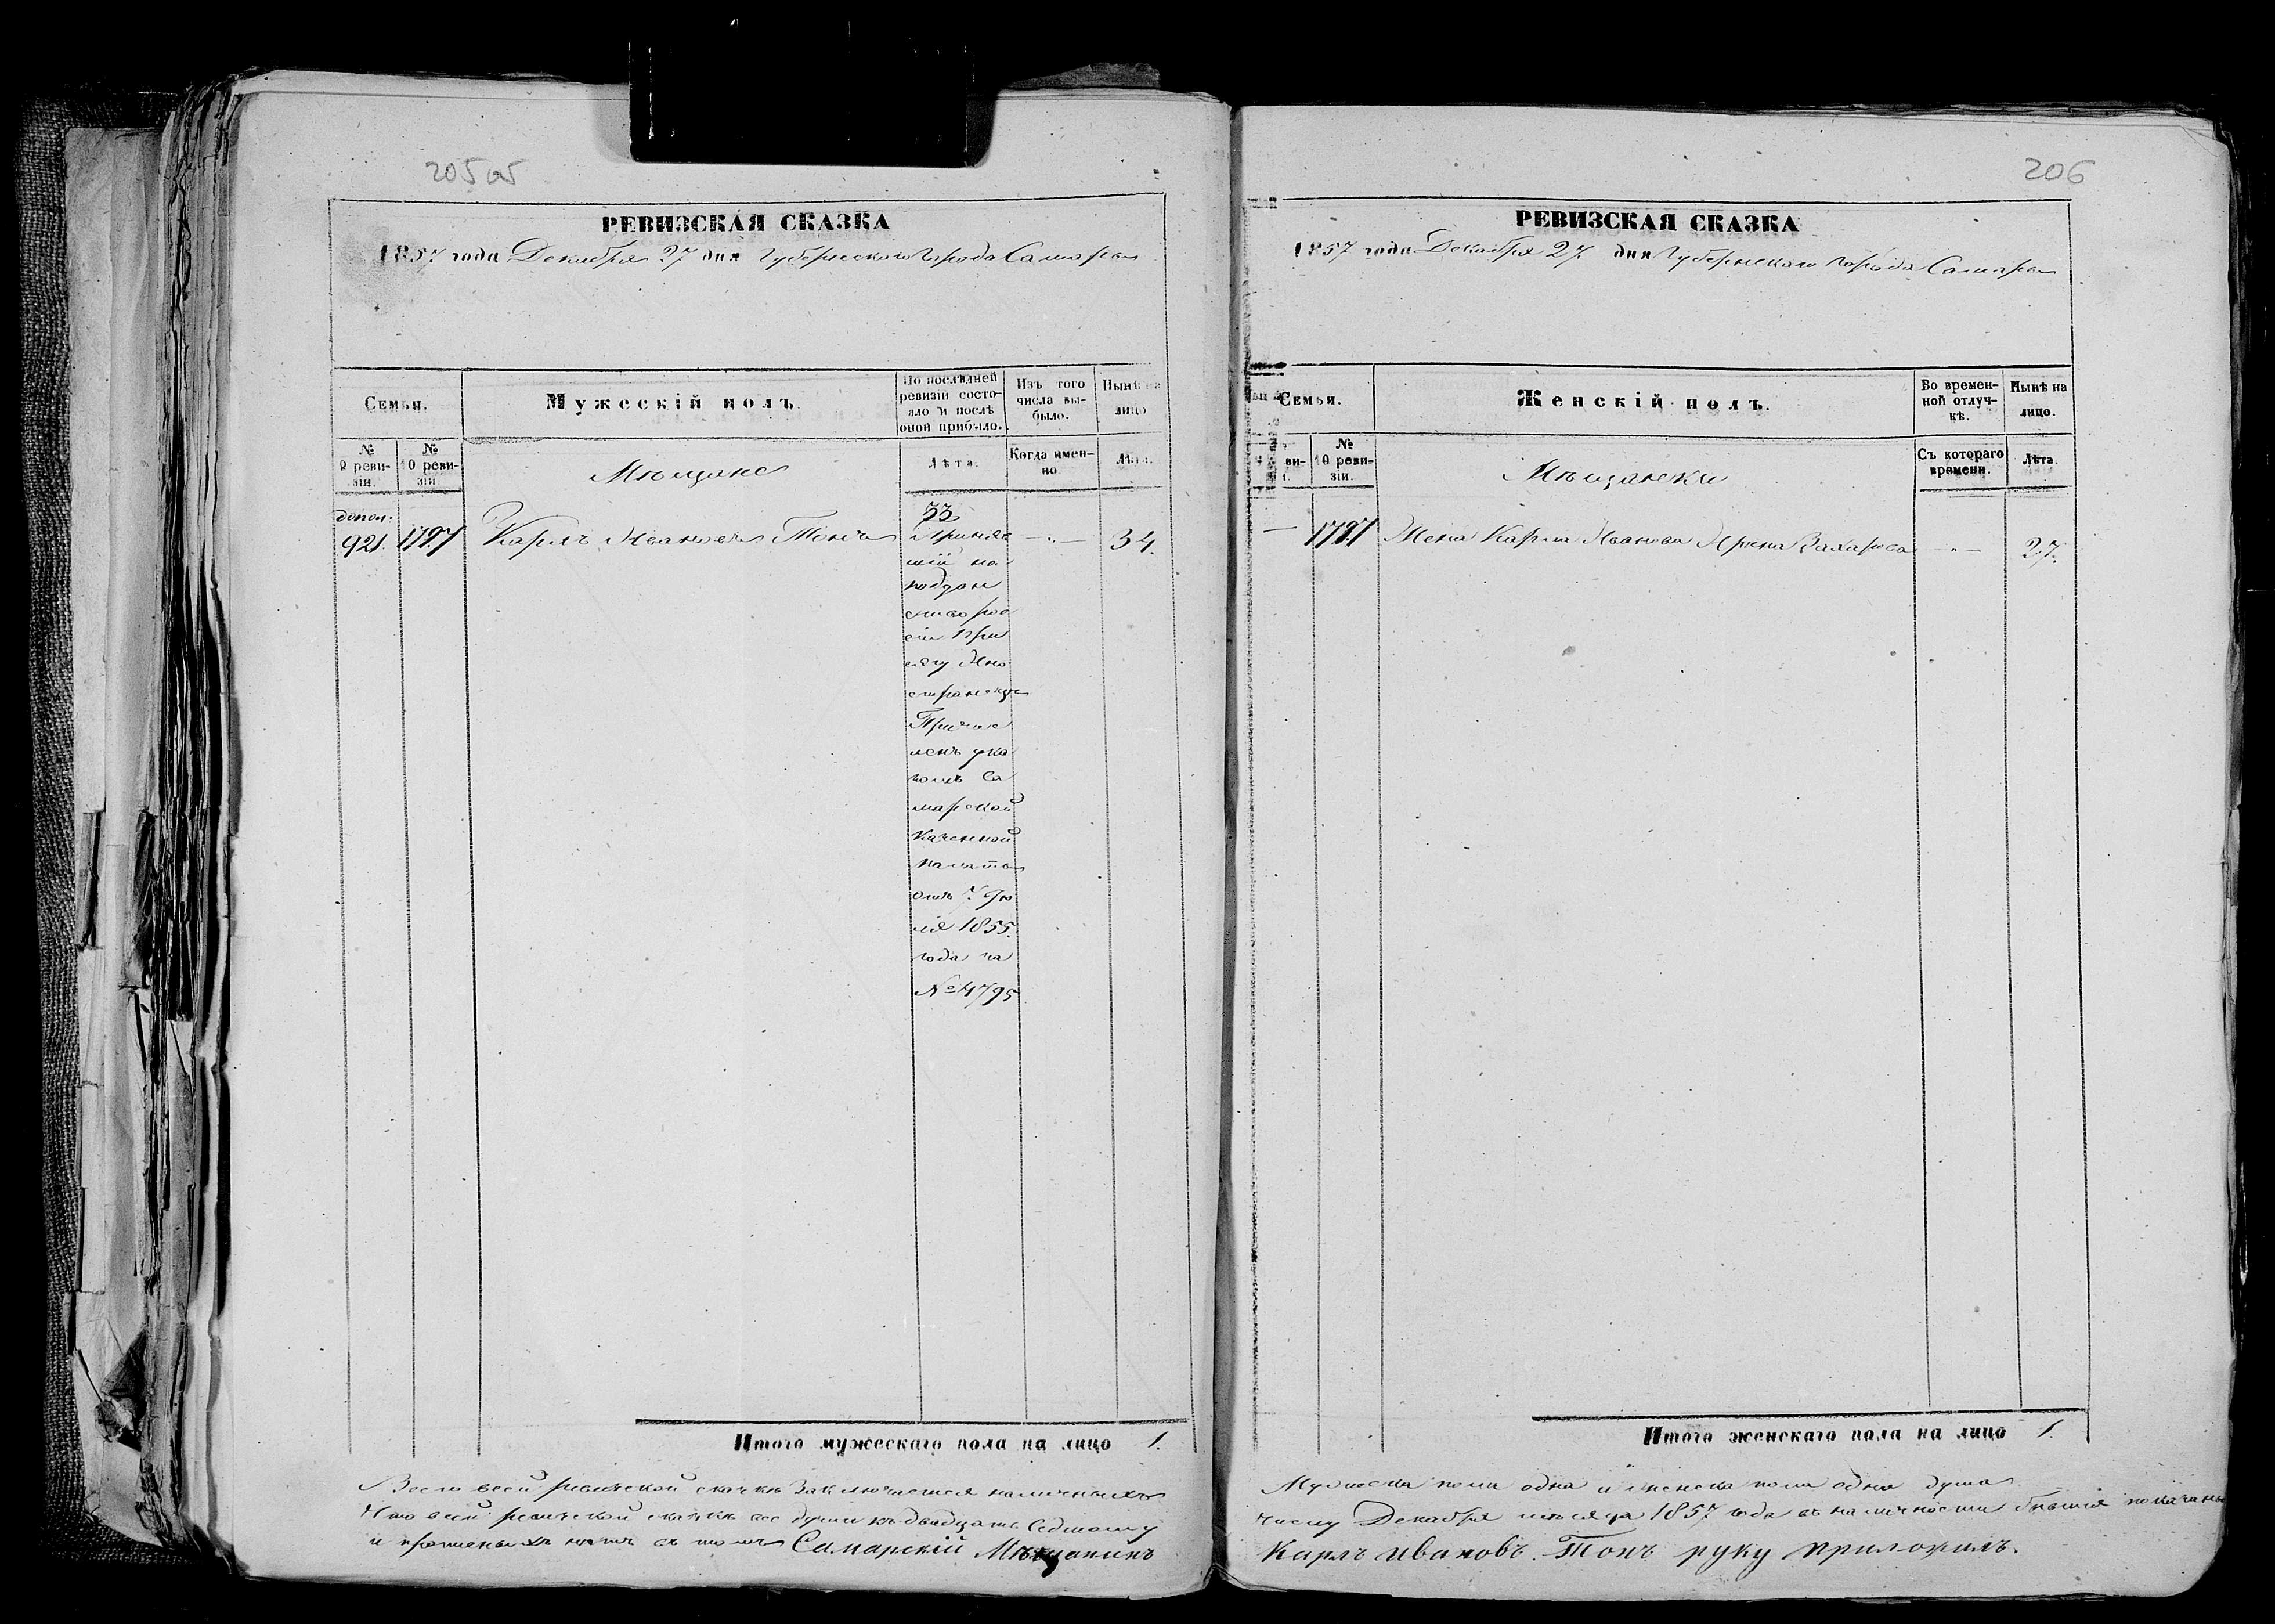 205об
РЕВИЗСКАЯ СКАЗКА
1857 года Декабря 27 дня Губернскаго города Самары
Семьи.
Мужескій полъ.
По последней ревизіи состояло и послѣ оной прибыло.
Изъ того числа выбыло.
Нынѣ на лицо
№ 9 ревизіи.
№ 10 ревизіи
Мѣщане
Лѣта.
Когда именно.
Лѣта.
допол: 921.
1797
Карлъ Ивановъ Тонъ
33
Приняв
шій на
подден
ство рос
сіи при
сягу Ино
странецъ
Причис
ленъ ука
зомъ Са
марской
Казенной
палаты
отъ 7 Ію
ля 1855
года за
№ 4795
34.
Итого мужескаго пола на лицо 1.
Всего въ сей ревизской сказкѣ заключается наличныхъ
Что въ сей ревизской сказкѣ все души къ двадцать седьмому
и прописныхъ нѣтъ въ томъ Самарскій Мѣщанинъ
206
РЕВИЗСКАЯ СКАЗКА
1857 года Декабря 27 дня Губернскаго города Самары
Семьи.
Женскій полъ.
Во временной отлучкѣ.
Нынѣ на лицо.
№ 10 ревизіи.
Мѣщански
Съ котораго времени.
Лѣта.
1797
Жена Карла Иванова Ирина Захарова
27.
Итого женскаго пола на лицо 1.
Мужеска пола одна и женска пола одна душа
числу Декабря мѣсяца 1857 года въ наличности бывшія показаны
Карлъ Ивановъ. Тонъ руку приложилъ.